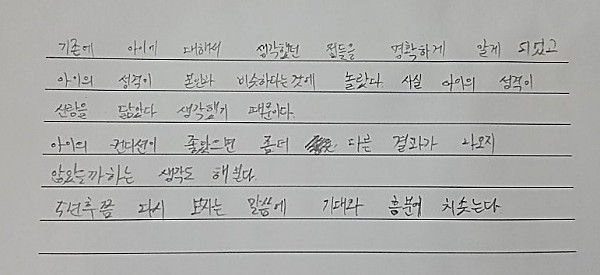 기존에 아이에 대해서 생각했던 점들을 명확하게 알게 되었고
아이의 성격이 본인과 비슷하다는것에 놀랐다. 사실 아이의 성격이
신랑을 닮았다 생각했기 때문이다.
아이의 컨디션이 좋았으면 좀더 다른 결과가 나오지
않았을까하는 생각도 해본다.
5년후쯤 다시 보자는 말씀에 기대와 흥분에 치솟는다